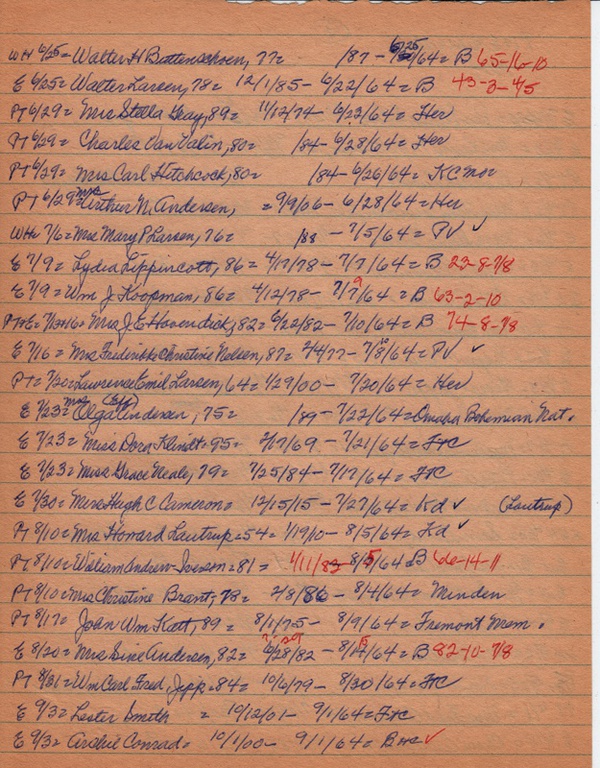 WH 6/25 = Walter H Bottenschoen, 77 = /87 - 6/25/64 = B 65-16-10
E 6/25 = Walter Larsen, 78 = 12/1/85 - 6/22/64 = B 43-3-4/5
PT 6/29 = Mrs Stella Gray, 89 = 11/12/74 - 6/23/64 = Her
PT 6/29 = Charles Van Valin, 80 = /84 - 6/28/64 = Her
PT 6/29 = Mrs Carl Hitchcock, 80 = /84 - 6/26/64 = KC Mo
PT 6/29 = Mrs Arthur N. Andersen, = 9/9/06 - 6/28/64 = Her
WH 7/6 = Mrs Mary P Larsen, 76 = /88 - 7/5/64 = PV ✓
E 7/9 = Lydia Lippincott, 86 = 4/17/78 - 7/7/64 = B 23-8-7/8
E 7/9 = Wm J. Koopman, 86 = 4/12/78 - 7/7 9/64 = B 63-2-10
PT+E = 7/13+16 = Mrs J. E Havendick, 82 = 6/22/82 - 7/10/64 = B 74-8-7/8
E 7/16 = Mrs Fredrikke Christine Nelsen, 87 = 2/4/77 - 7/8/64 = PV ✓
PT = 7/20 = Lawrence Emil Larsen, 64 = 1/29/00 - 7/20/64 = Her
E 7/23 = Mrs Olga Andersen, 75 = /89 - 7/22/64 = Omaha Bohemian Nat.
E 7/23 = Miss Dora Klindt = 95 = 2/17/69 - 7/21/64 =
E 7/23 = Miss Grace Neale, 79 = 7/25/84 - 7/17/64 =
E 7/30 = Hugh C Cameron = 12/15/15 - 7/27/64 = Kd ✓ (Lautrup)
PT 8/10 = Mrs Howard Lautrup = 54 = 1/19/10 - 8/5/64 = Kd ✓
PT 8/10 = William Andrew Iverson = 81 = 1/11/83 - 8/5/64 B 66-14-11
PT 8/10 = Mrs Christine Brant, 78 = 2/8/86 - 8/4/64 = Minden
PT 8/17 = John Wm Katt, 89 = 8/1/75 - 8/9/64 = Fremont Mem.
E 8/20 = Mrs Sine Andersen, 82 = 6/28/82 - 8/15/64 = B 82-10-7/8
PT 8/31 = Wm Carl Fred, Jepp = 84 = 10/6/79 - 8/30/64 =
E 9/3 = Lester Smith = 10/12/01 - 9/1/64 =
E 9/3 = Archie Conrad = 10/1/00 - 9/1/64 = ✓